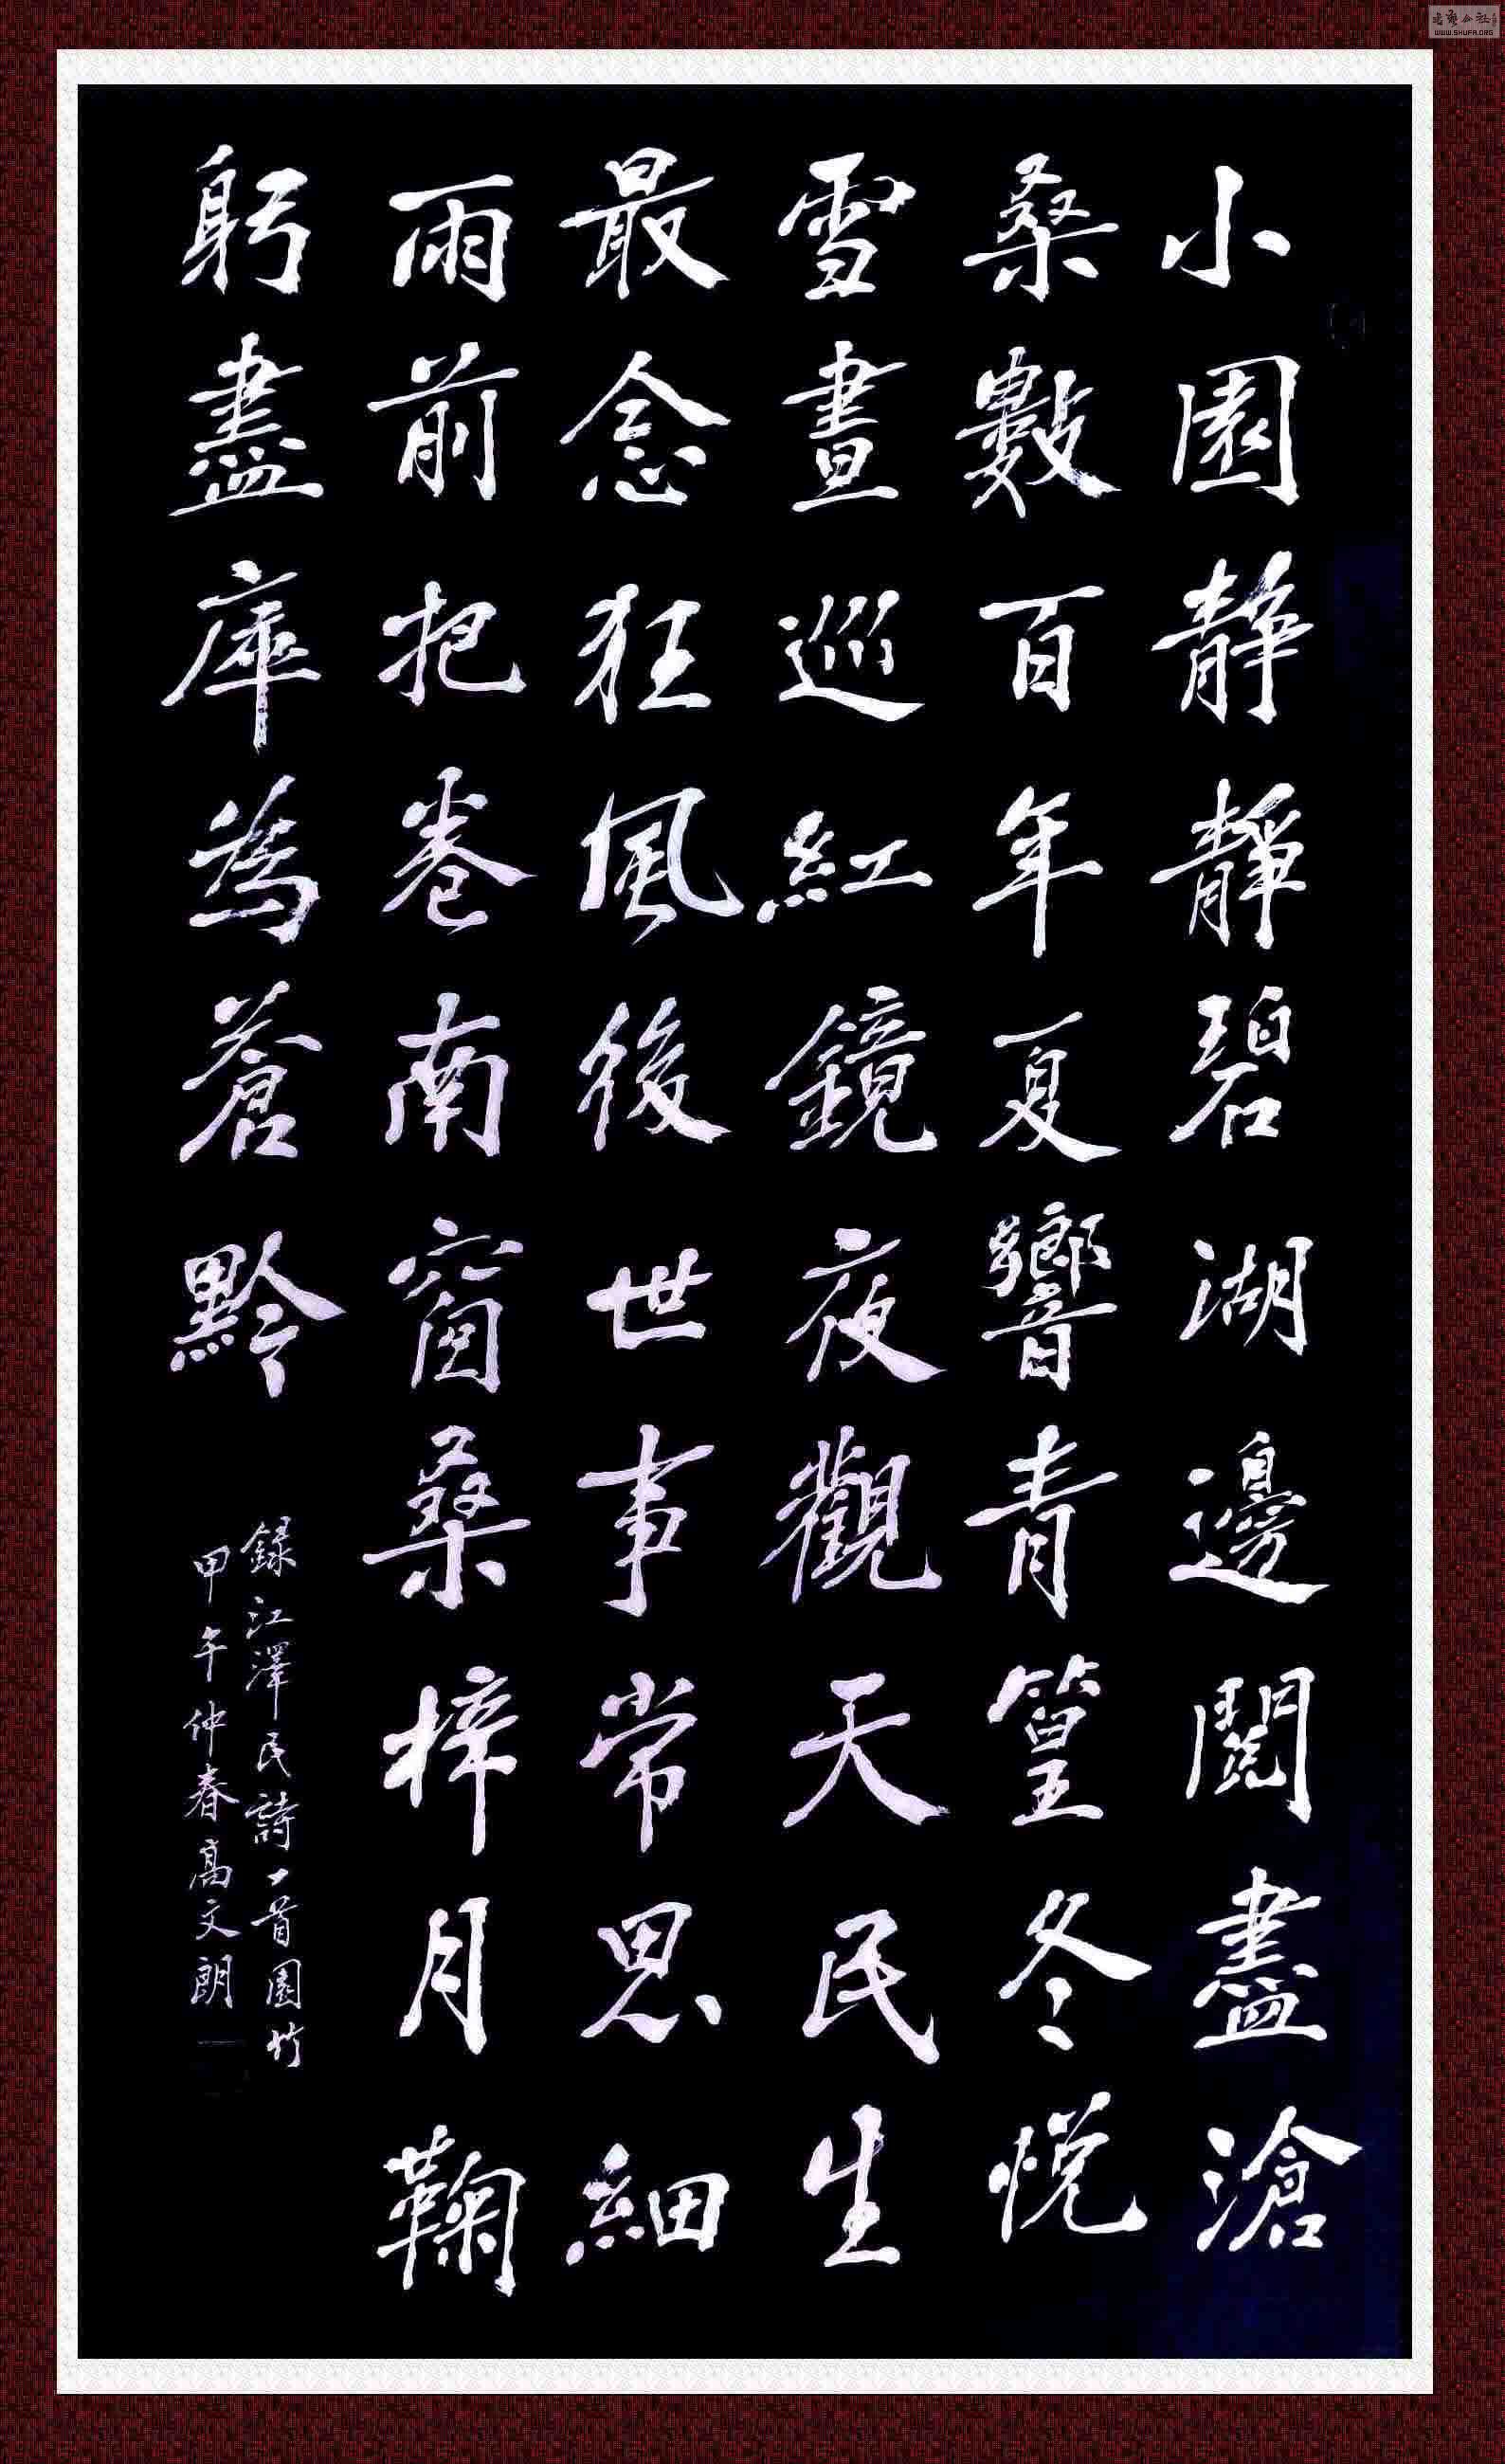 小園静靜碧湖邊閱盡滄
桑數百年夏響青篁冬悦
雪晝巡紅鏡夜觀天民生
最念狂風後世事常思細
雨前把卷南窗桑梓月鞠
躬盡庠為蒼黔
錄江澤民詩一首園竹
甲午仲春高文朗
WWW.SHUFA.ORG